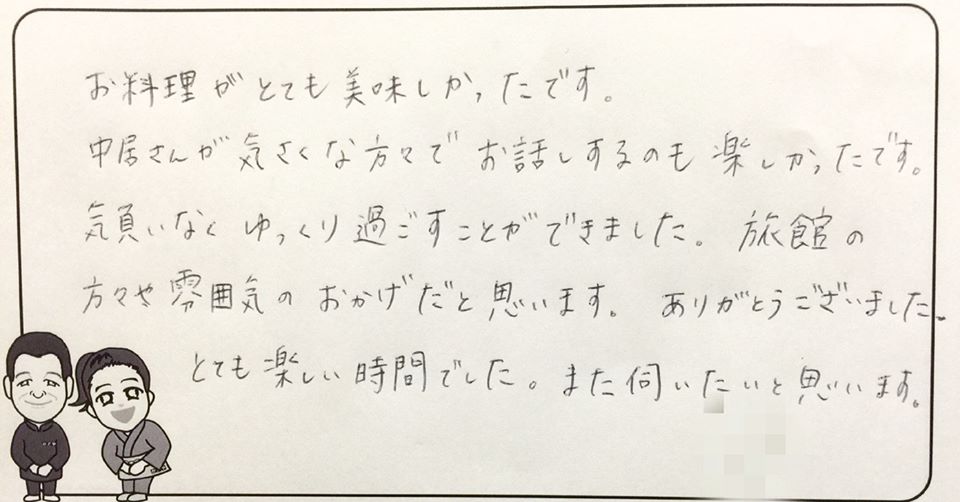 お料理がとても美味しかったです。
中居さんが気さくな方々でお話しするのも楽しかったです。
気負いなくゆっくり過ごすことができました。旅館の
方々や雰囲気のおかげだと思います。ありがとうございました。
とても楽しい時間でした。また伺いたいと思います。